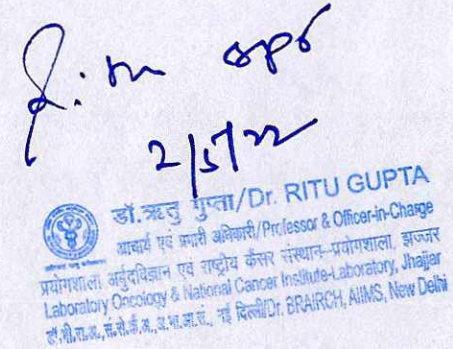 2/5/22
डॉ. ऋतु गुप्ता/Dr. RITU GUPTA
आचार्य एवं प्रभारी अधिकारी/Professor & Officer-in-Charge
प्रयोगशाला अर्बुदविज्ञान एवं राष्ट्रीय कैंसर संस्थान-प्रयोगशाला, झज्जर
Laboratory Oncology & National Cancer Institute-Laboratory, Jhajjar
नई दिल्ली/Dr. BRAIRCH, AIIMS, New Delhi